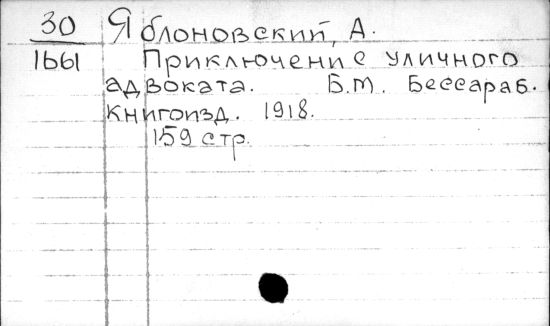 30 Яблоновский, А.
1661 Приключение уличного
адвоката. Б.м. Бессараб.
Книгоизд. 1918.
159 стр.